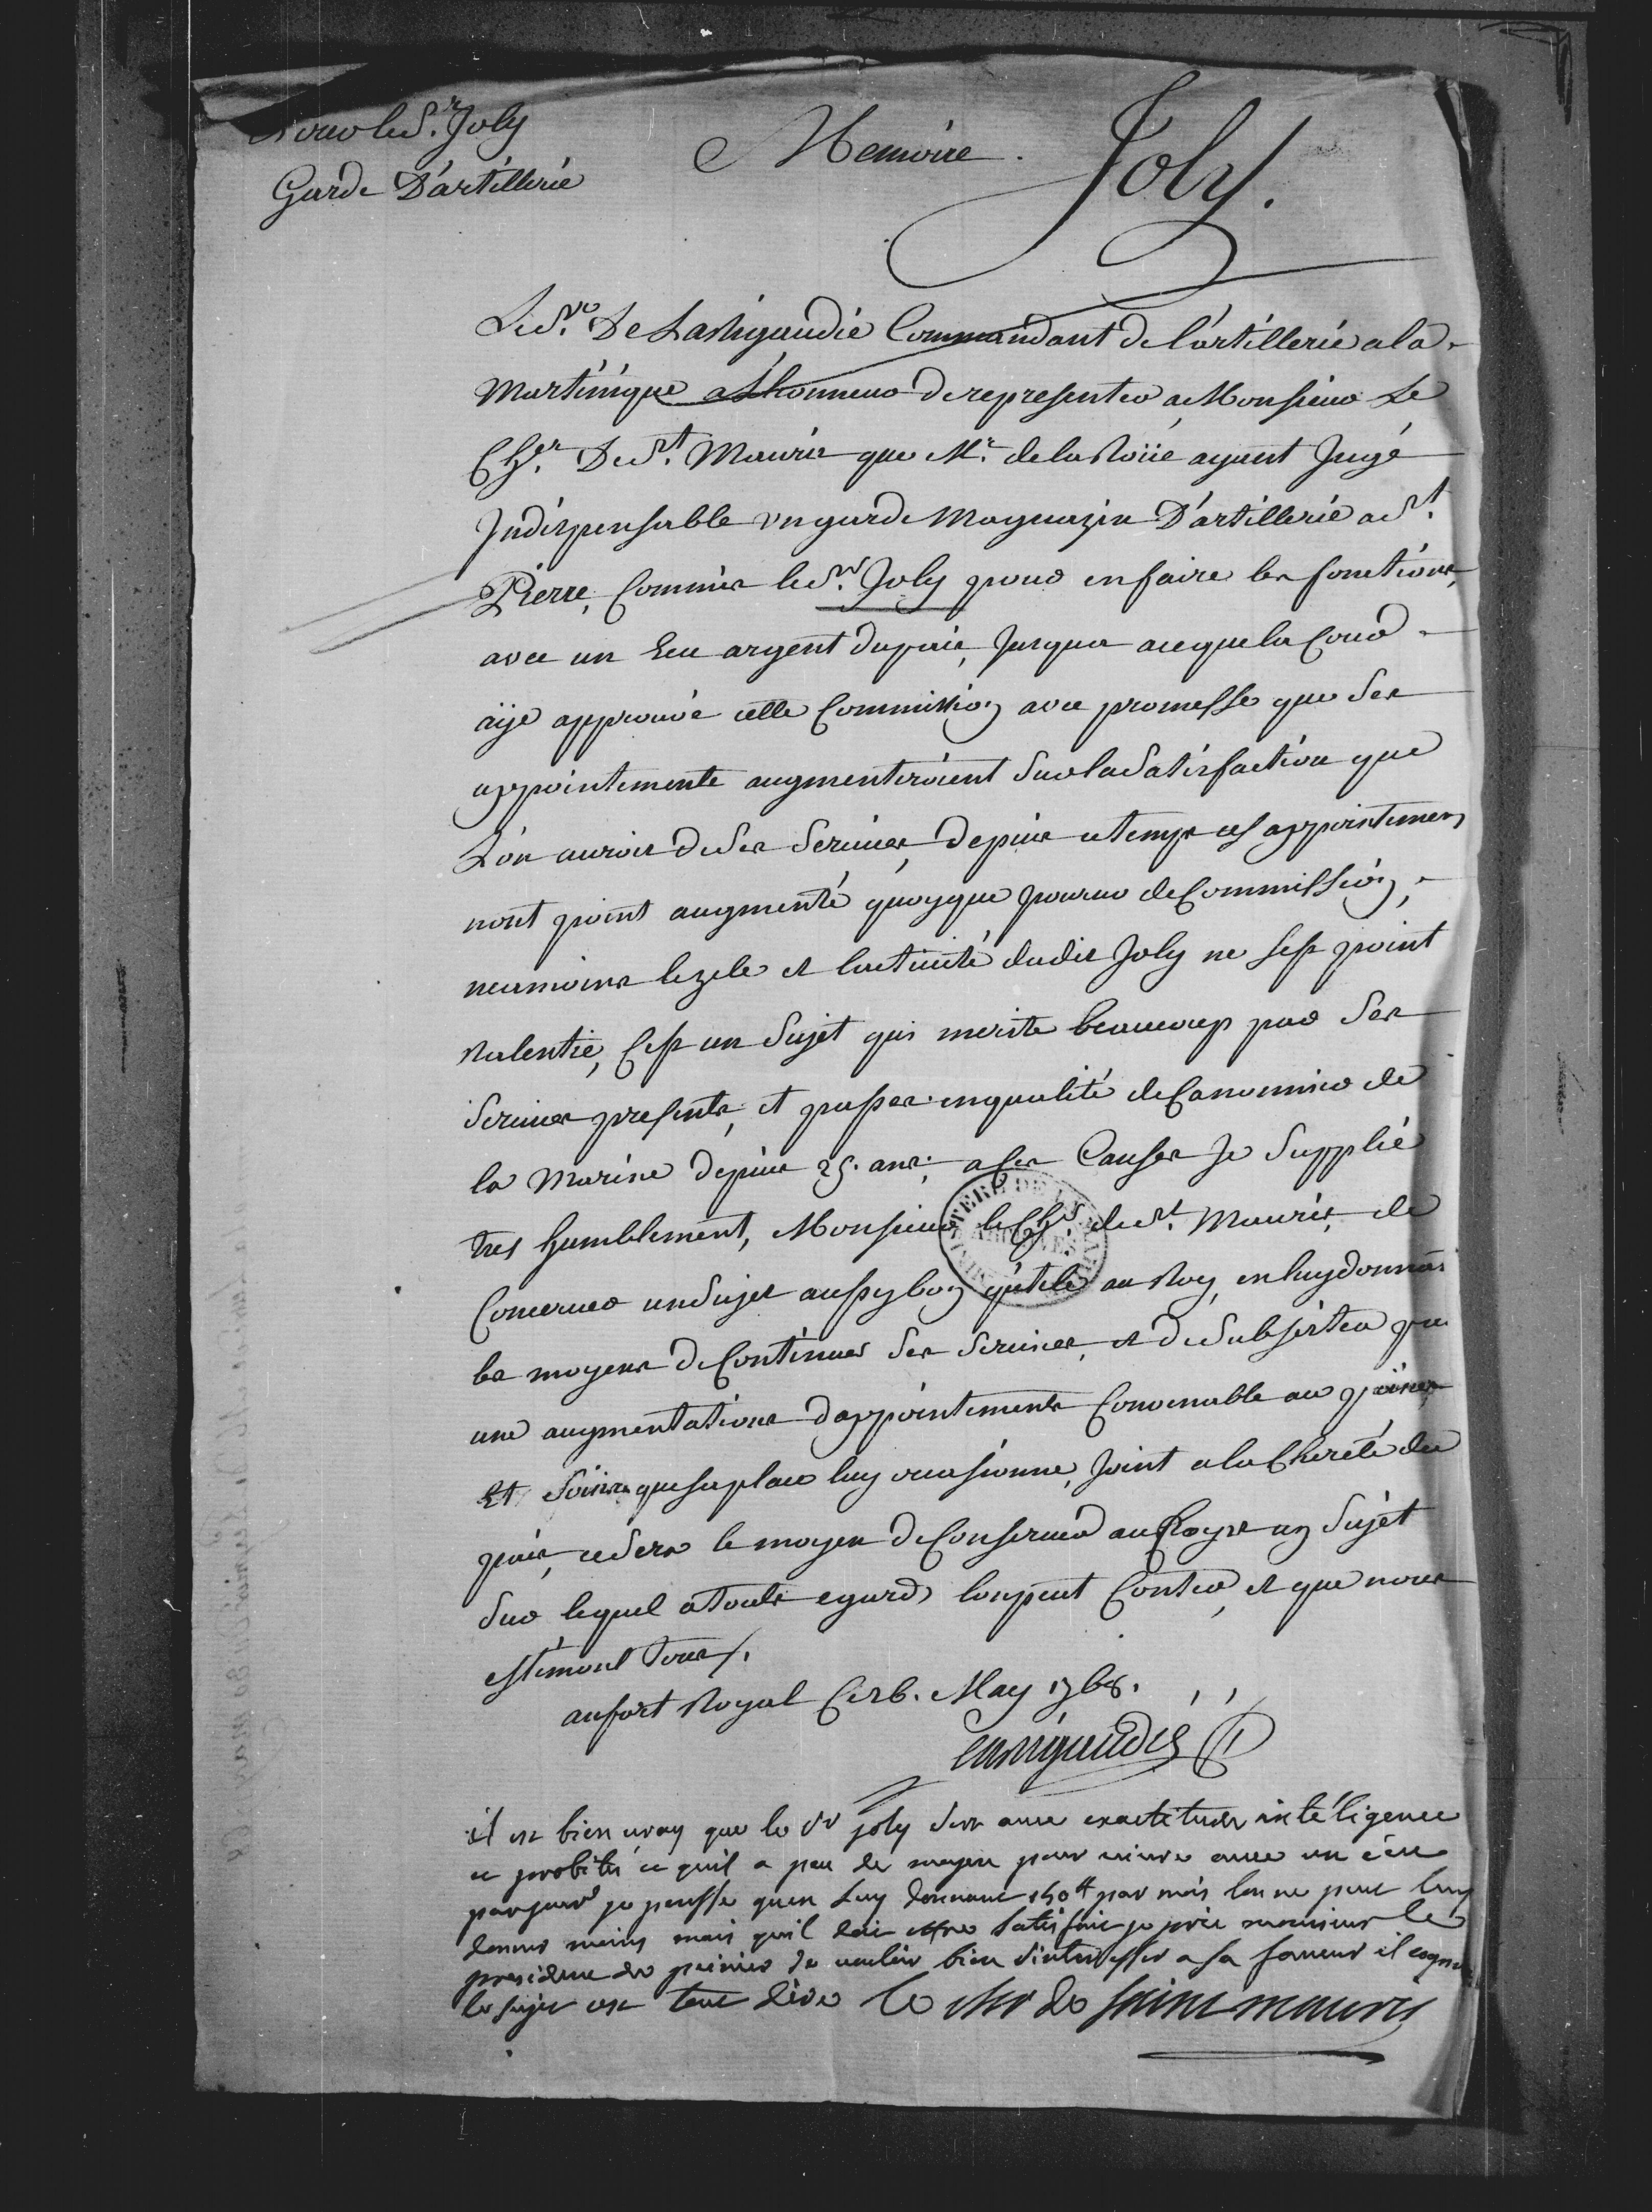 Pour le S.r Joly
Garde D'artillerie
Memoire.
Joly.
Le S.r De Larrigaudie Commandant de l'artillerie a la
Martinique a L'honneur de representer a Monsieur Le
Ch.er De S.t Mauris que M.r de la Roüe ayant Jugé
Indispensable un garde Magazin D'artillerie a S.t
Pierre, Commis le S.r Joly pour en faire les fonctions,
avec un Ecu argent du païs, Jusqua ce que la Cour
aije approuvé cette Commission avec promesse que Ses
appointements augmenteroient Sur la Satisfaction que
L'on auroit de Ses Services, depuis ce temps ces appointemens
n'ont point augmenté quoyque pourvu de Commission,
neanmoins le zele et lactivité dudit Joly ne sest point
ralentie, Cest un Sujet qui merite beaucoup par Ses
Services presents, et passes en qualité de Canonnier de
la Marine depuis 25. ans; a Ces Causes Je Supplie
tres humblement, Monsieur le Ch.r de S.t Mauris, de
Conserver un Sujet aussy bon qutile au Roy, en luy donnant
les moyens de Continuer Ses Services, et de Subsister par
une augmentations dappointements Convenable au peines
Et Soins que sa place luy occasionne, Joint a la Cherété du
païs, ce Sera le moyen de Conserver au Roy un Sujet
Sur lequel a touts egards lon peut Conter, et que nous
estimons tous./.
au fort Royal Ce 26. May 1768.
Larrigaudie
il est bien vray que le Sr joly sert avec exactitude intéligence
et probité et quil a peu de moyen pour vivre avec un écu
par jour je pensse quen Luy donnant 150tt par mois lon ne peut luy
donner moins mais quil doit estre satisfait je prie monsieur le
president de peinier de vouloir bien sinteresser a sa faveur
le sujet est tout dire le chr de saint mauris